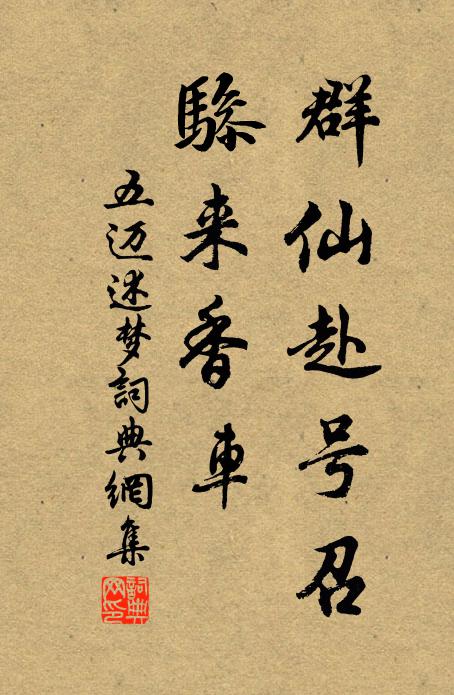 群仙赴号召
驂来香車
五迈述梦詞典網集
詞典网印